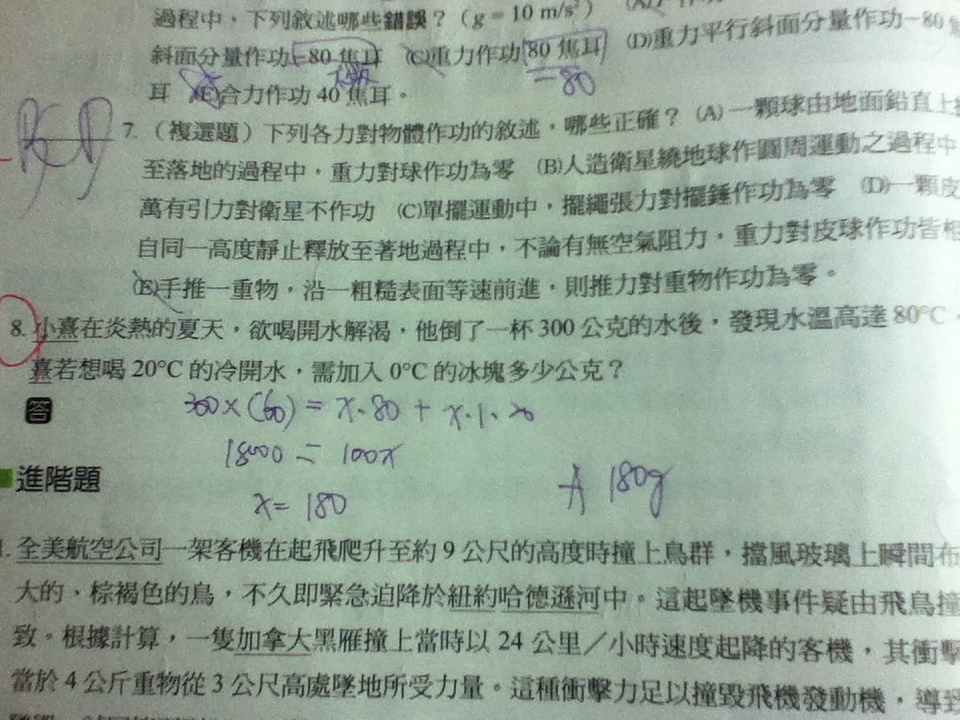 過程中，下列敘述哪些錯誤？（g = 10 m/s²）
斜面分量作功-80 焦耳 (C)重力作功 80 焦耳 (D)重力平行斜面分量作功-80
=80
耳 (E)合力作功 40 焦耳。
BCD
7. （複選題）下列各力對物體作功的敘述，哪些正確？ (A) 一顆球由地面鉛直上
至落地的過程中，重力對球作功為零 (B)人造衛星繞地球作圓周運動之過程中
萬有引力對衛星不作功 (C)單擺運動中，擺繩張力對擺錘作功為零 (D)一顆皮
自同一高度靜止釋放至著地過程中，不論有無空氣阻力，重力對皮球作功皆相
(E)手推一重物，沿一粗糙表面等速前進，則推力對重物作功為零。
8. 小熹在炎熱的夏天，欲喝開水解渴，他倒了一杯 300 公克的水後，發現水溫高達 80°C，
熹若想喝 20°C 的冷開水，需加入 0°C 的冰塊多少公克？
答
300×(60) = x·80 + x·1·20
18000 = 100x
x = 180
A 180g
進階題
1. 全美航空公司一架客機在起飛爬升至約 9 公尺的高度時撞上鳥群，擋風玻璃上瞬間布
大的、棕褐色的鳥，不久即緊急迫降於紐約哈德遜河中。這起墜機事件疑由飛鳥撞
致。根據計算，一隻加拿大黑雁撞上當時以 24 公里／小時速度起降的客機，其衝擊
當於 4 公斤重物從 3 公尺高處墜地所受力量。這種衝擊力足以撞毀飛機發動機，導致